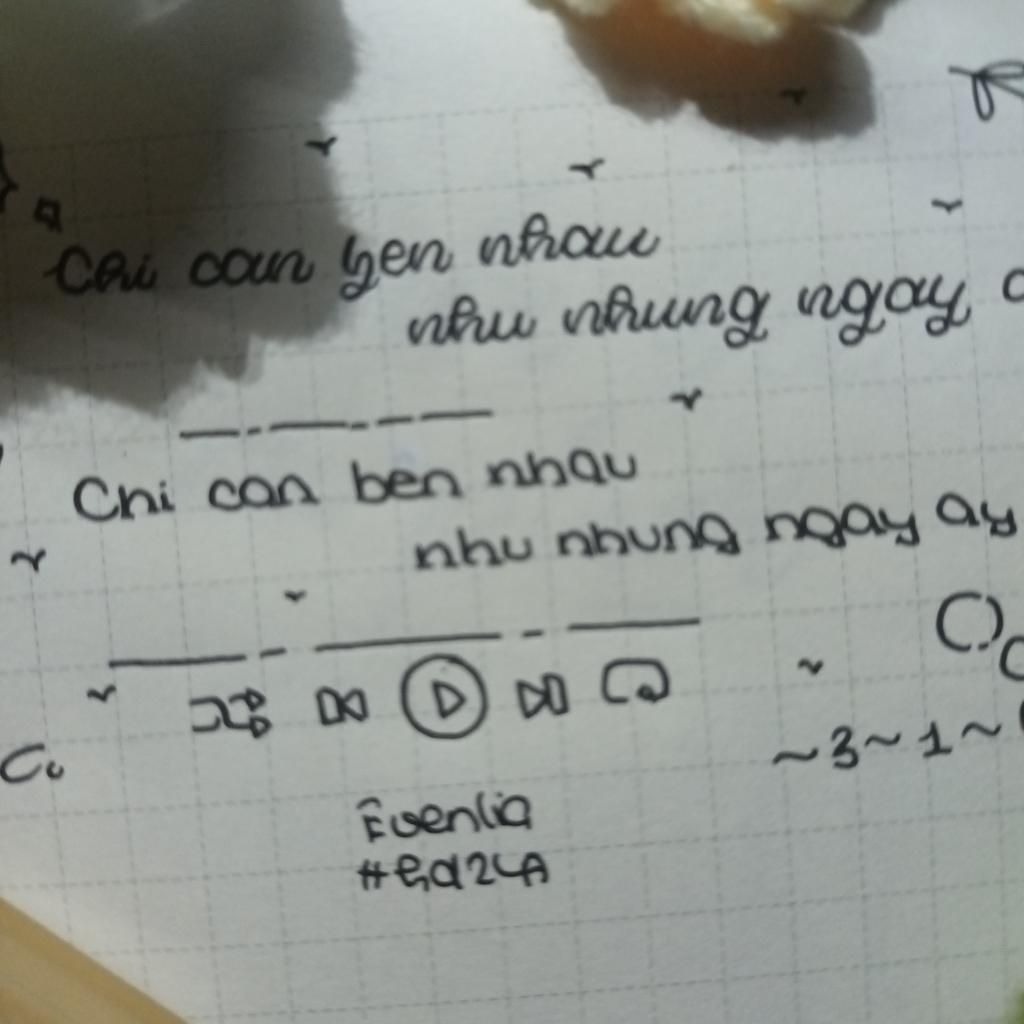 Chi can ben nhau
như nhung ngay
Chi can ben nhau
nhu nhung ngay ay
~3~1~
Evenlia